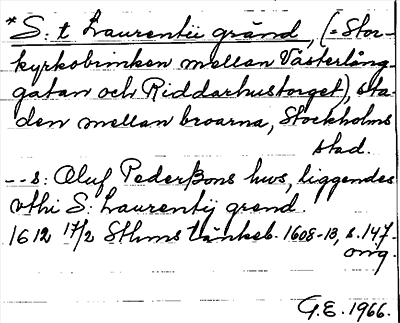 *S:t Laurentii gränd, (=Stor-
kyrkobrinken mellan Västerlång-
gatan och Riddarhustorget), sta-
den mellan broarna, Stockholms
stad.
--s: Oluf Pederßons hws, liggendes
vthi S: Laurentij grend.
1612 17/2 Sthms tänkeb. 1608-13, s. 147.
orig.
G.E. 1966.